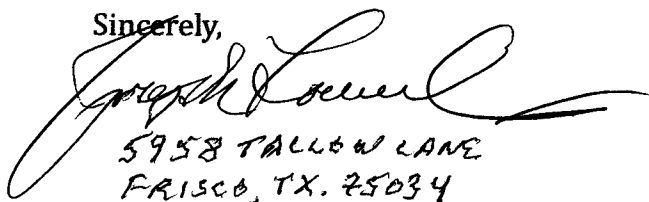 Sincerely,
Joseph
5958 TALLOW LANE
FRISCO, TX. 75034